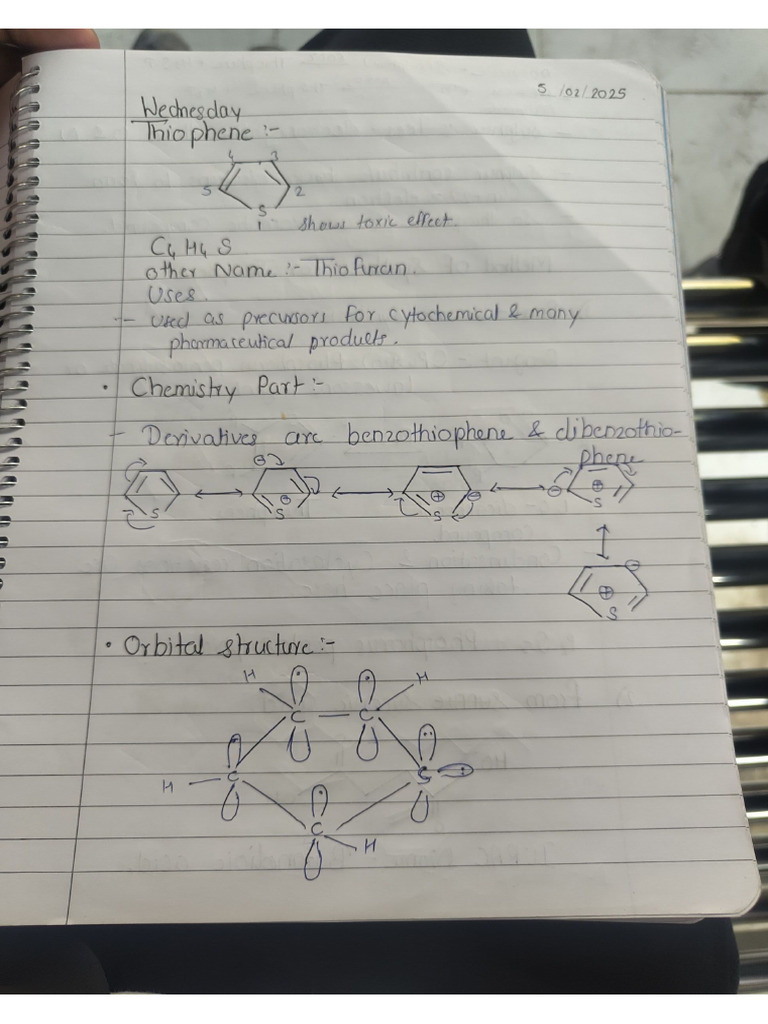 5 /02/2025
Wednesday
Thiophene :-
4 3
5 2
S
1 shows toxic effect.
C4 H4 S
Other Name :- Thiofuran.
Uses.
- Used as precursors for cytochemical & many
pharmaceutical products.
• Chemistry Part :-
- Derivatives are benzothiophene & dibenzothio-
phene
⊖
⊕ ⊕ ⊖ ⊖ ⊕
S S S S
⊖
⊕
S
• Orbital structure :-
H H
C C
H C S
C
H